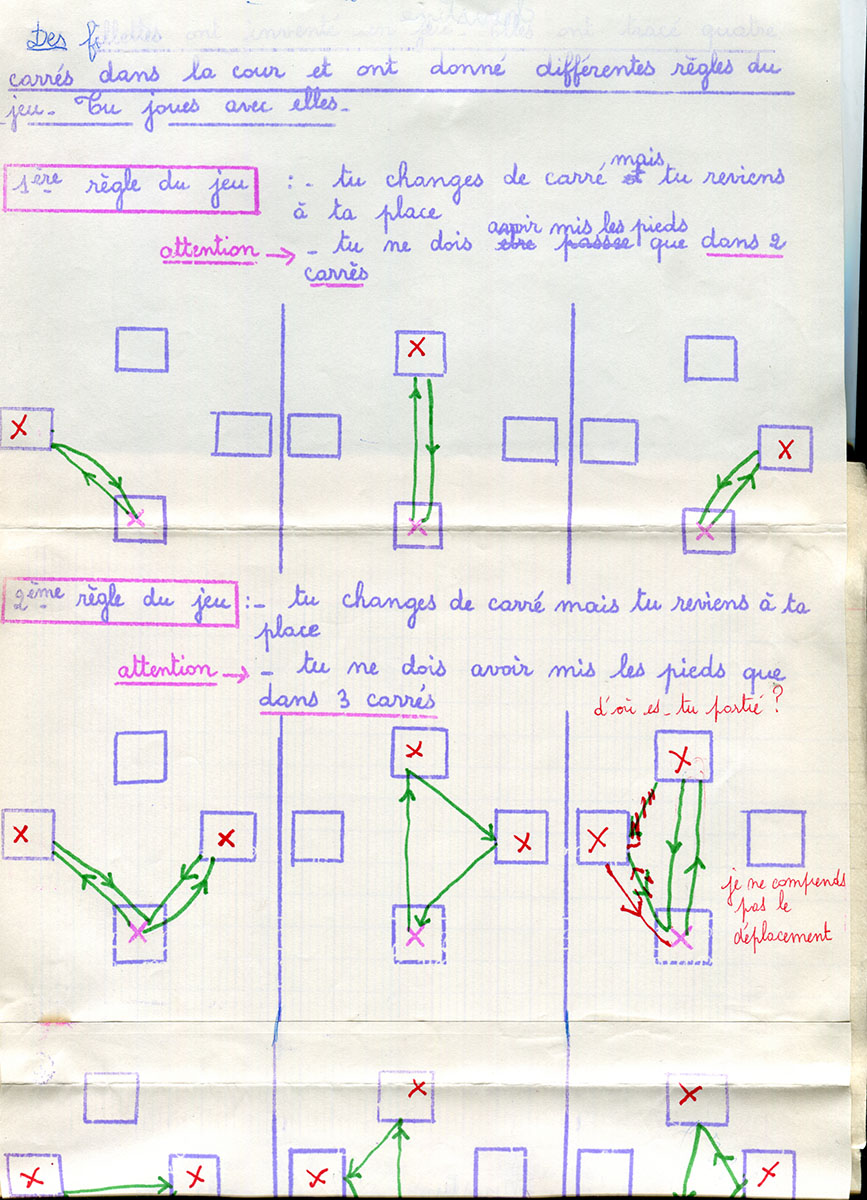 Des fillettes ont inventé un jeu. Elles ont tracé quatre
carrés dans la cour et ont donné différentes règles du
jeu. Tu joues avec elles.
1ère règle du jeu : - tu changes de carré et mais tu reviens
à ta place
attention → - tu ne dois être passée avoir mis les pieds que dans 2
carrés
2ème règle du jeu :- tu changes de carré mais tu reviens à ta
place
attention → - tu ne dois avoir mis les pieds que
dans 3 carrés
d'où es-tu partie ?
je ne comprends
pas le
déplacement